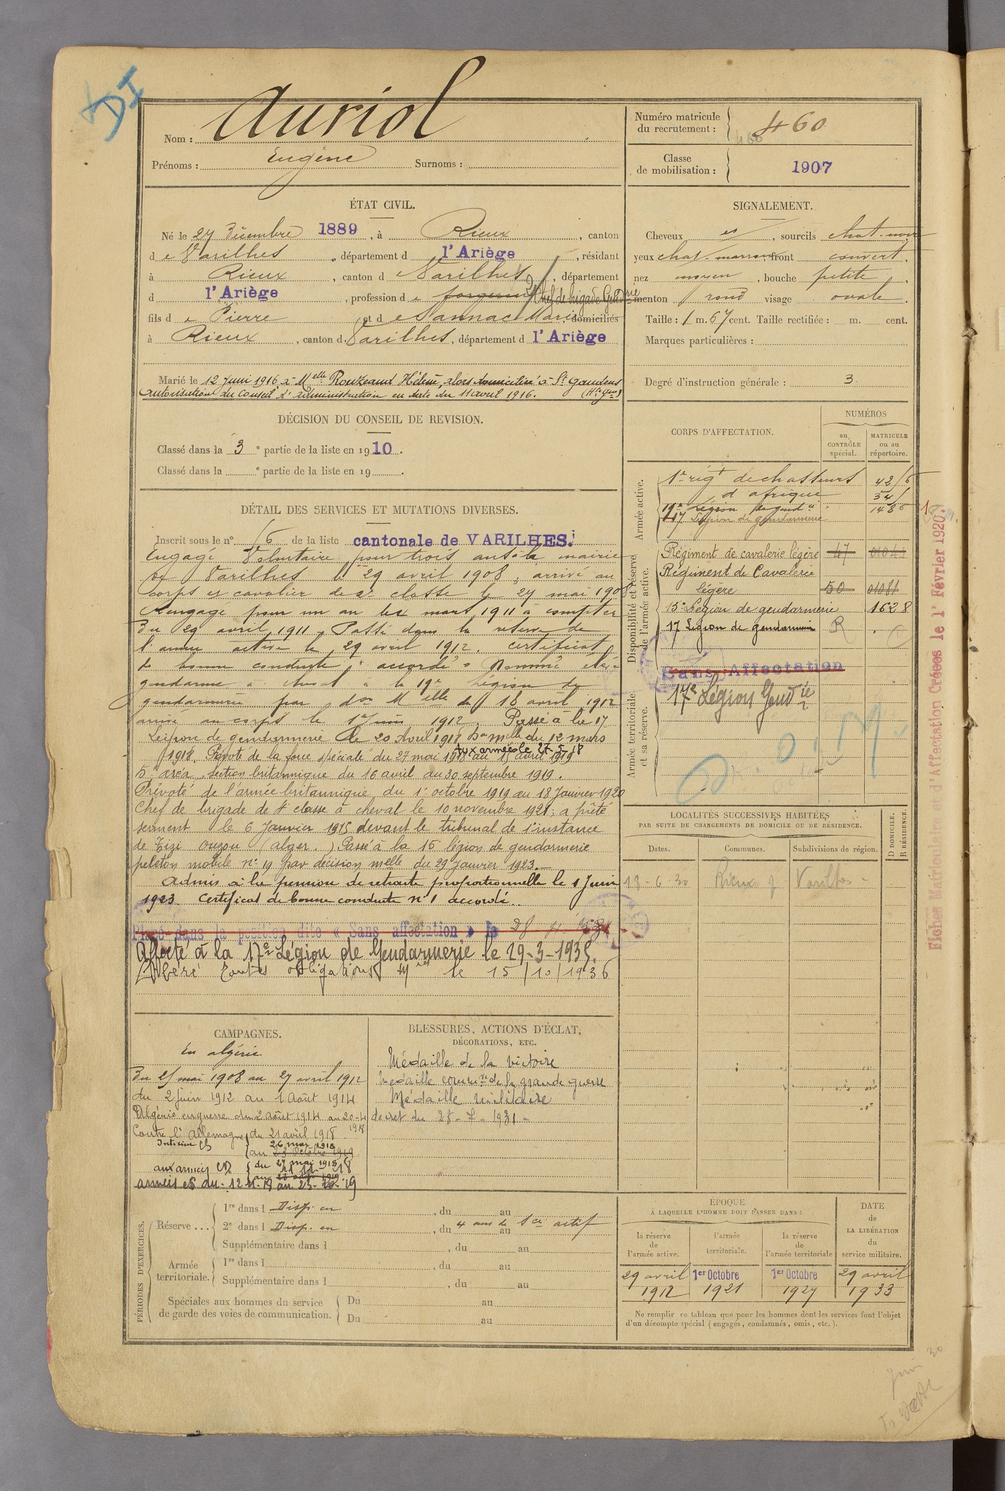 DI
Nom : Auriol
Prénoms : Eugène Surnoms :
Numéro matricule
du recrutement : 460
Classe
de mobilisation : 1907
ÉTAT CIVIL.
Né le 27 Décembre 1889, à Rieux, canton
de Varilhes, département d l'Ariège, résidant
à Rieux, canton de Varilhes, département
d l'Ariège, profession de forgeron Chef de brigade Gendrie
fils de Pierre et de Sannac Marie domiciliés
à Rieux, canton de Varilhes, département d l'Ariège
Marié le 12 juin 1916 à Melle Rouzeaud Hélène, alors domiciliée à St Gaudens
autorisation du Conseil d'administration en date du 11 avril 1916. (Hte Gne)
SIGNALEMENT.
Cheveux , sourcils chat. noir
yeux chat. marron front couvert.
nez moyen, bouche petite,
menton rond visage ovale.
Taille : 1 m. 67 cent. Taille rectifiée : m. cent.
Marques particulières :
Degré d'instruction générale : 3
DÉCISION DU CONSEIL DE REVISION.
Classé dans la 3e partie de la liste en 1910.
Classé dans la e partie de la liste en 19 .
CORPS D'AFFECTATION.
NUMÉROS
au
CONTRÔLE
spécial.
MATRICULE
ou au
répertoire.
Armée active.
1er rigt de chasseurs
d'afrique
19e Légion de gendie
17 Légion de gendarmerie
Disponibilité et réserve
de l'armée active.
Régiment de cavalerie légère 47
Régiment de Cavalerie
légère 50
15e Légion de gendarmerie 1628
17 Légion de gendarmerie R
Sans Affectation
Armée territoriale
et sa réserve.
17e Légion Gendie
DÉTAIL DES SERVICES ET MUTATIONS DIVERSES.
Inscrit sous le n° 16 de la liste cantonale de VARILHES.
Engagé Volontaire pour trois ans à la mairie
de Varilhes le 29 avril 1908, arrivé au
corps et cavalier de 2e classe le 27 mai 1908
Rengagé pour un an le mars 1911 à compter
du 29 avril 1911. Passé dans la réserve de
l'armée active le 29 avril 1912. certificat
de bonne conduite "accordé". Nommé élève
gendarme à cheval à la 19e légion de
gendarmerie par don Melle du 18 avril 1912
arrivé au corps le 1er juin 1912. Passé à la 17
Légion de gendarmerie le 20 Avril 1918 Don mlle du 12 mars
1918. Prévôté de la force spéciale du 27 mai 1918 au 15 avril 1919
Aux armées le 27-5-18
5e area section britannique du 16 avril au 30 septembre 1919.
Prévôté de l'armée britannique du 1er octobre 1919 au 18 Janvier 1920
Chef de brigade de 4e classe à cheval le 10 novembre 1921; a prêté
serment le 6 Janvier 1915 devant le tribunal de 1re instance
de Tizi ouzou (alger.) Passé à la 15 légion de gendarmerie
peloton mobile n° 19 par décision melle du 29 Janvier 1923.
Admis à la pension de retraite proportionnelle le 1 Juin
1923. Certificat de bonne conduite n° 1 accordé.
Placé dans la position dite « Sans affectation » le 28
Affecté à la 17e Légion de Gendarmerie le 29-3-1935.
Libéré toutes obligations le 15/10/1936
LOCALITÉS SUCCESSIVES HABITÉES
PAR SUITE DE CHANGEMENTS DE DOMICILE OU DE RÉSIDENCE.
Dates.
Communes.
Subdivisions de région.
D DOMICILE.
R RÉSIDENCE
13-6-30 Rieux Varilhes
Fiches Matriculaire d'Affectation Créées le 1er Février 1920.
CAMPAGNES.
En algérie
Du 27 mai 1908 au 27 avril 1912
du 2 juin 1912 au 1 Août 1914
Algérie en guerre du 2 août 1914 au 20-4
1918
Contre l'Allemagne du 21 avril 1918
Intérieur CS au 26 mai 1918
aux armées CD du 27 mai 1918
armées CS du 12-11-19 au 23-10-19
BLESSURES, ACTIONS D'ÉCLAT,
DÉCORATIONS, ETC.
Médaille de la victoire
Médaille commve de la grande guerre
Médaille militaire
decret du 28-7-1931
PÉRIODES D'EXERCICES.
Réserve ...
1re dans l Disp. en , du au
2e dans l Disp. en , du 4 ans de Sce actif au
Supplémentaire dans l , du au
Armée
territoriale.
1re dans l , du au
Supplémentaire dans l , du au
Spéciales aux hommes du service
de garde des voies de communication.
Du au
Du au
ÉPOQUE
À LAQUELLE L'HOMME DOIT PASSER DANS :
la réserve
de
l'armée active.
l'armée
territoriale.
la réserve
de
l'armée territoriale
DATE
de
LA LIBÉRATION
du
service militaire.
29 avril
1912
1er Octobre
1921
1er Octobre
1927
29 avril
1933
Ne remplir ce tableau que pour les hommes dont les services font l'objet
d'un décompte spécial (engagés, condamnés, omis, etc.).